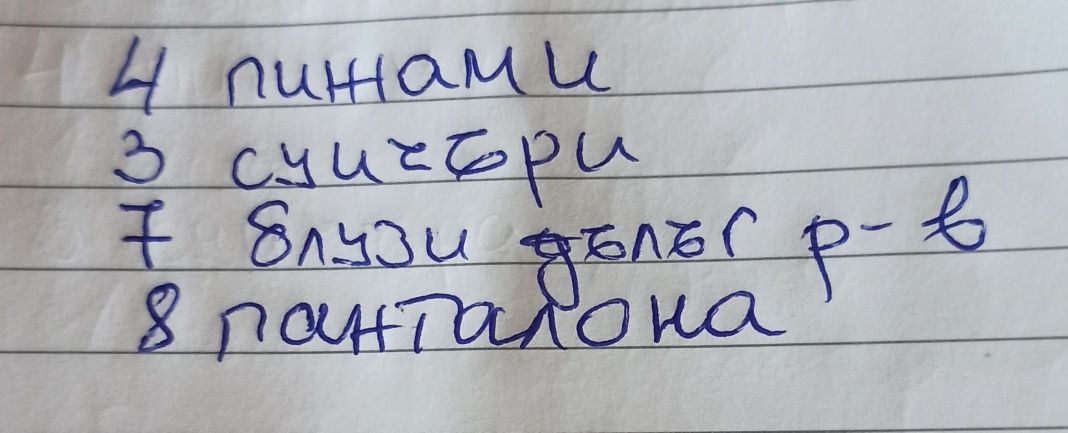 4 пижами
3 суичъри
7 блузи дълъг р-в
8 панталона